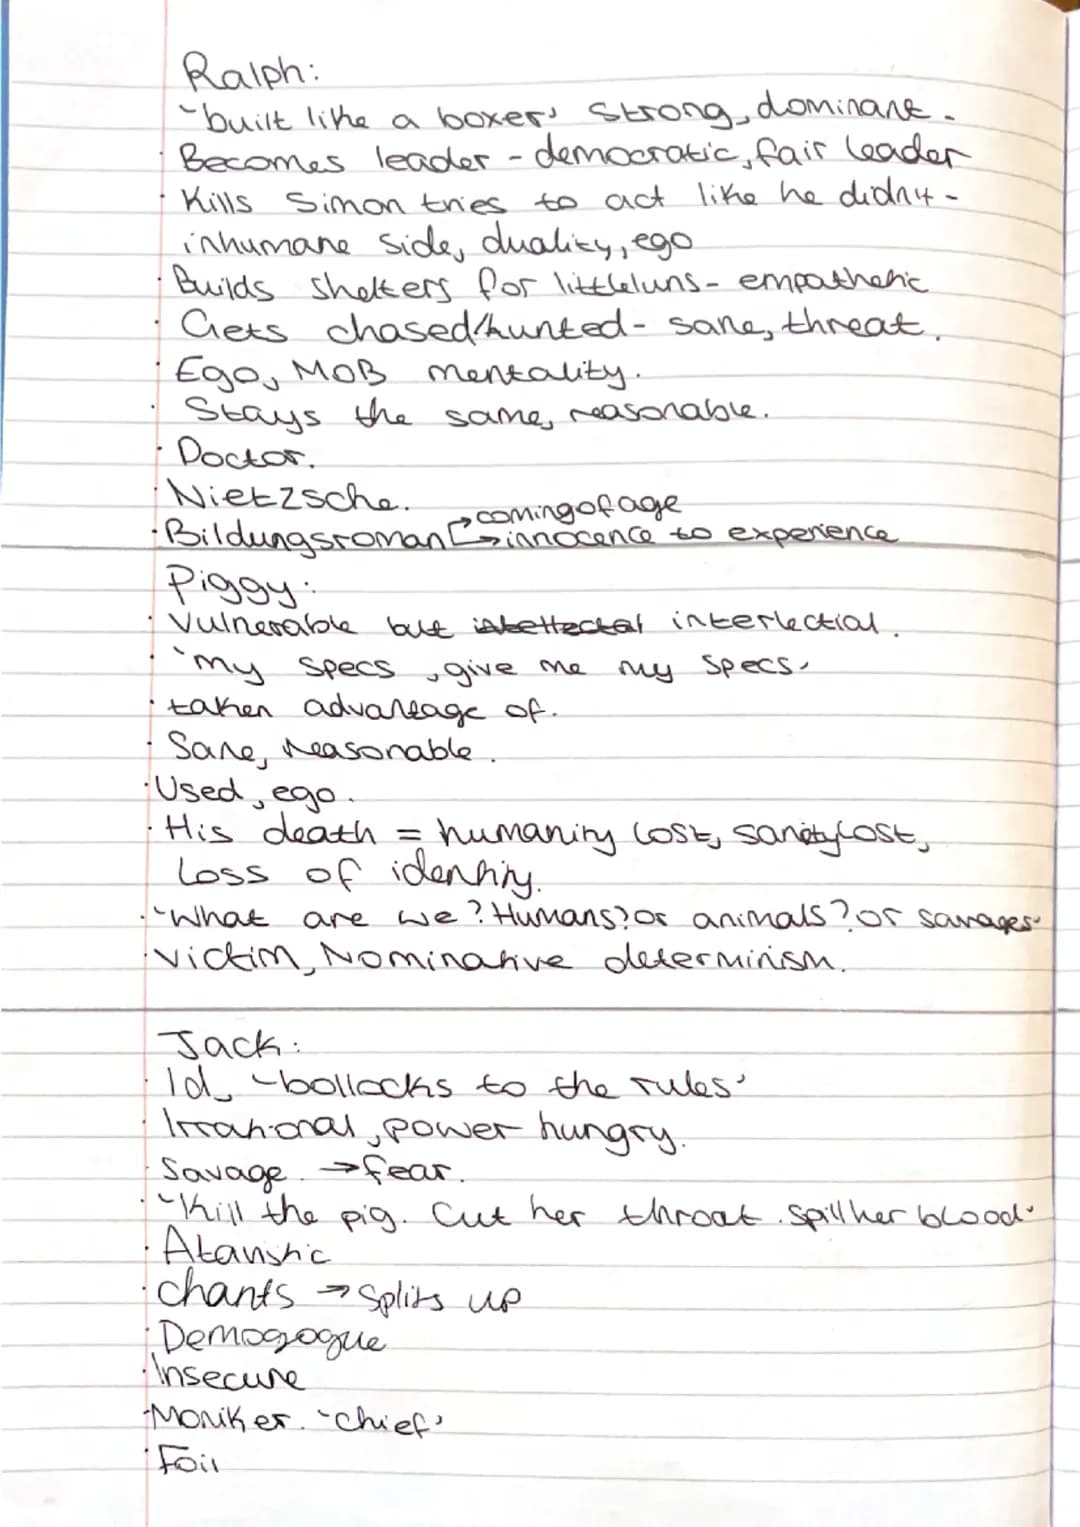 Ralph:
'built like a boxer' Strong, dominant.
· Becomes leader - democratic, fair leader
· Kills Simon tries to act like he didn't -
inhumane side, duality, ego
· Builds shelters for littleluns - empathetic
· Gets chased/hunted - sane, threat.
· Ego, MOB mentality.
· Stays the same, reasonable.
· Doctor.
· Nietzsche.
→ coming of age
· Bildungsroman → innocence to experience
Piggy:
· Vulnerable but intellectal interlectial.
· 'my specs, give me my specs'
· taken advantage of.
· Sane, reasonable.
· Used, ego.
· His death = humanity lost, sanity lost,
loss of identity.
· 'What are we? Humans? or animals? or savages'
· victim, Nominative determinism.
Jack:
· Id, 'bollocks to the rules'
· Irrational, power hungry.
· Savage. → fear.
· 'Kill the pig. Cut her throat. spill her blood'
· Atavistic
· chants → splits up
· Demogogue
· Insecure
· Moniker. 'chief'
· Foil